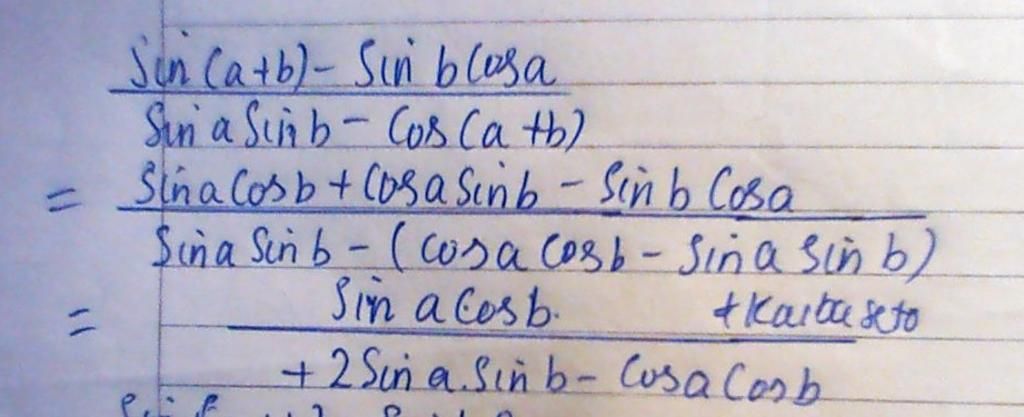 Sin (a+b) - Sin b Cos a
Sin a Sin b - Cos (a+b)
= Sin a Cos b + Cos a Sin b - Sin b Cos a
Sin a Sin b - (Cos a Cos b - Sin a Sin b)
= Sin a Cos b.
+ 2 Sin a . Sin b - Cos a Cos b